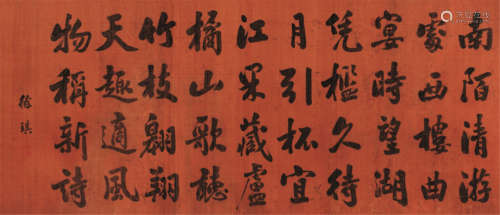 南陌清游
處西樓曲
宴時望湖
凭檻久待
月引杯宜
江果藏盧
橘山歌聽
竹枝翱翔
天趣適風
物稱新詩
徐琪